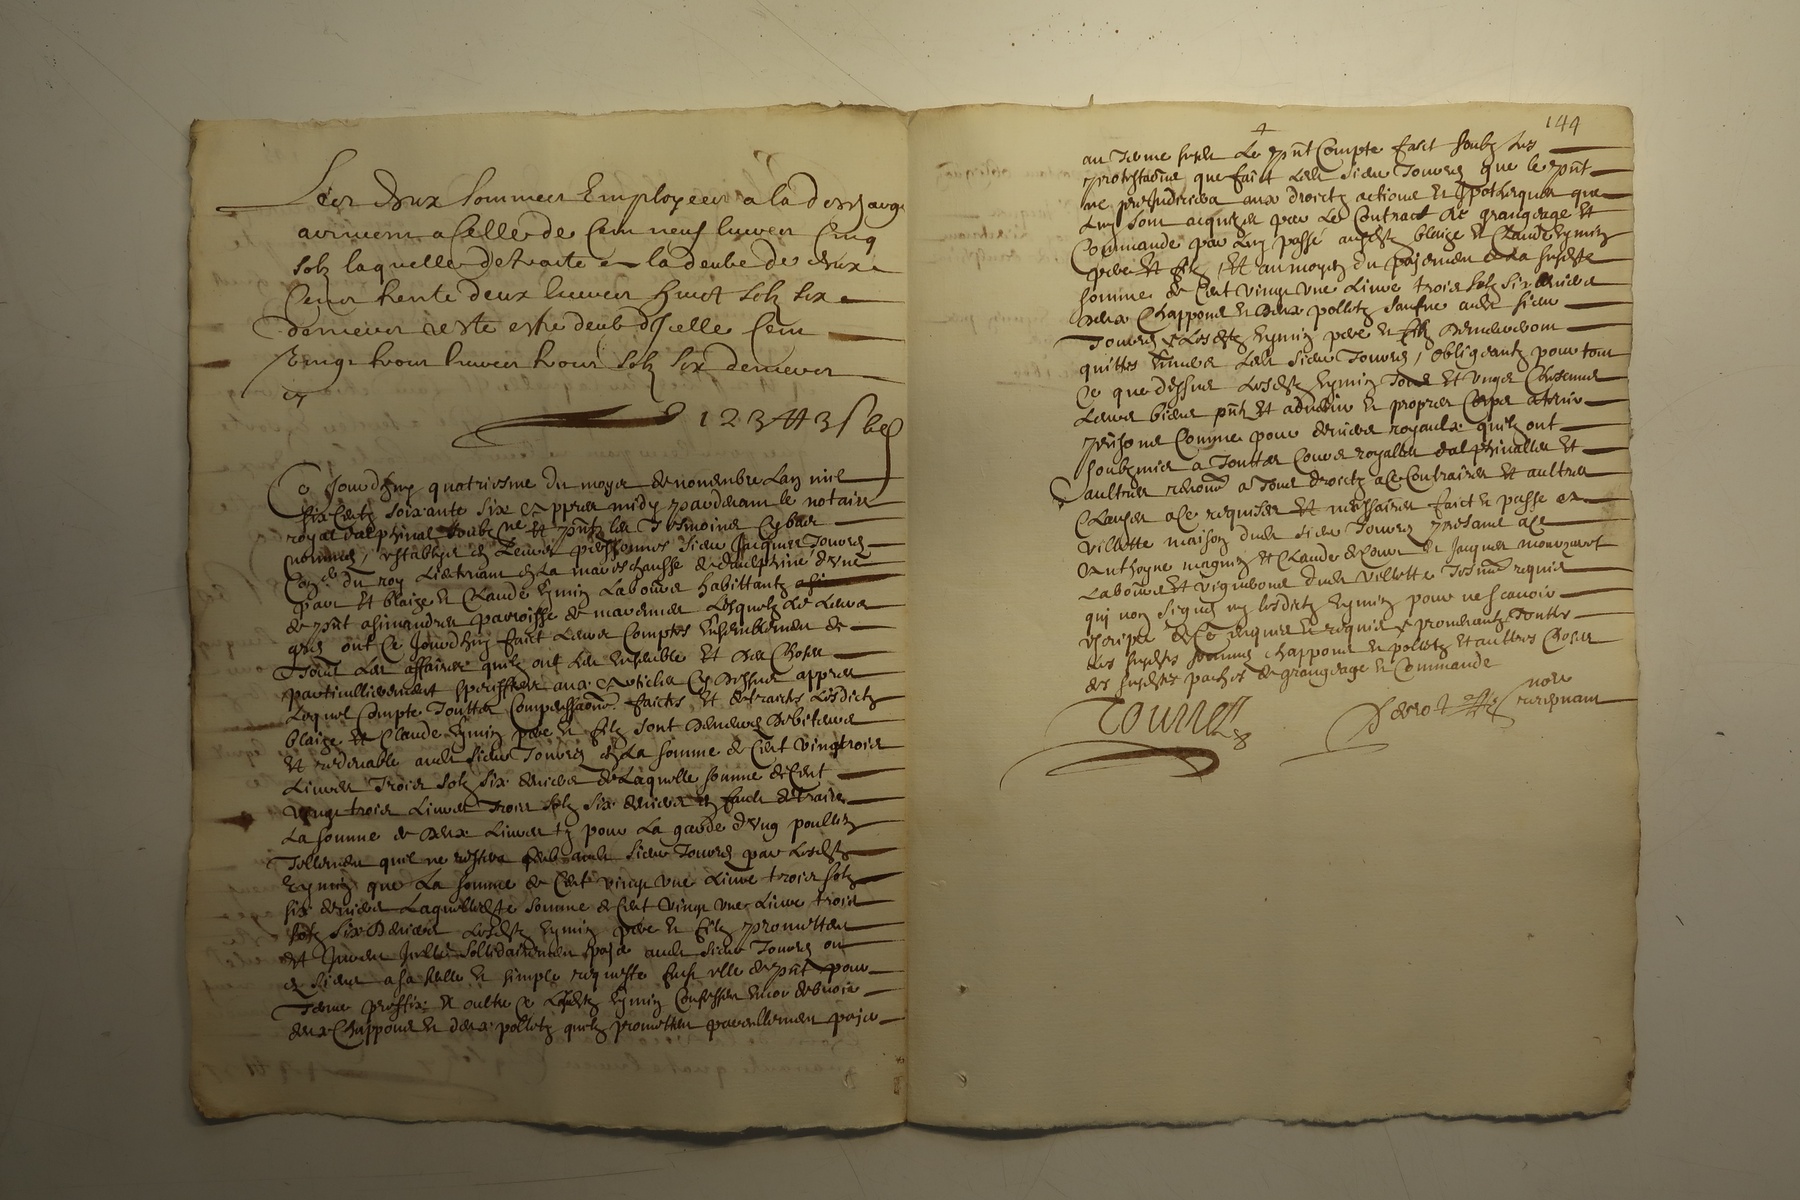 Les deux sommes Employees a la descharge
arrivent a Celle de Cent neuf livres Cinq
solz laquelle detraite en la deube de deux
Cens trente deux livres huict solz six
deniers reste estre deub dIcelle Cent
vingt trois livres trois solz six deniers
cy
123 ₶ 3 s 6 d
Ce Jourdhuy quatriesme du moys de novembre Lan mil
six Centz soixante six & appres midy pardevant le notaire
royal dalphinal soubz.ne et pntz les Tesmoins cybas
nommes / establys en Leurs personnes Sieur Jacques Tourres
Con.er du roy Lieutenant en La mareschaussee de daulphiné dune
part et blaize et Claude Eymin Laboureurs habittantz
de pnt a simandres parroisse de marennes Lesquelz de Leurs
gres ont Ce Jourdhuy faict Leurs Comptes Ensemblement de
Tous Les affaires quilz ont Eu Ensemble et Des Choses
particullierement speciffiees aux articles Cy Dessus appres
Lequel Compte Touttes Compensaons faictes et detraictes Lesdictz
blaize et Claude Eymin pere et filz sont Demeures Debiteurs
et redevable audt sieur Tourres En La somme de Cent vingtrois
Livres Trois solz six deniers de Laquelle somme de Cent
vingt trois Livres Trois solz six deniers En fault detraire
La somme de Deux Livres pour La garde dung poullin
Tellement quil ne restera deub audt Sieur Tourres par Lesdtz
Eymin que La somme de Cent vingt une Livre trois solz
six deniers Laquelle dte somme de Cent Vingt une Livre trois
solz six Deniers Lesdtz Eymin pere et filz promettent
et Jurent Iceulx sollidairement payer audt Sieur Tourres ou
es siens a sa seulle et simple requeste
Terme preffix et oultre ce Lesdtz Eymin Confessent Encor debvoir
deux Chappons et deux polletz quilz promettent pareillement payer
144
au Terme susdt Le pnt Compte faict soubz Les
protestaons que faict Ledt Sieur Tourres que le pnt
ne prejudiciera aux droictz actions et ypotheques que
Luy sont acquises par Le Contract de grangeage et
Commande par Luy passé ausdtz blaize et Claude Eymin
pere et filz / Et au moyen du payement de La susdte
somme de Cent vingt une Livre trois solz six deniers
deux Chappons et deux polletz saufve audt sieur
Tourres Lesdtz Eymin pere et filz Demeureront
quittes Envers Ledt Sieur Tourres / Obligeantz pour tout
Ce que dessus Lesdtz Eymin Tous et Ungs Chescuns
Leurs biens pntz et advenir et propres Corps a tenir
prison Comme pour deniers royaulx quilz ont
soubzmis a Touttes Cours royalles dalphinalles et
aultres renonc.t a Tous droictz a Ce Contraires et aultres
Clauses a Ce requises et necessaires faict et passé en
Villette maison dudt sieur Tourres presant a Ce
Anthoyne magnin et Claude et Jacques
Laboureur et vigneron dudt Villette Tesmoins requis
qui nont signés ny Lesdictz Eymin pour ne scavoir
escripre de Ce Enquis et requis promettantz Touttes
Les susdtes sommes chappons et polletz et aultres Choses
des susdtes paches de grangeage et Commande
Tourres
nore
recepvant